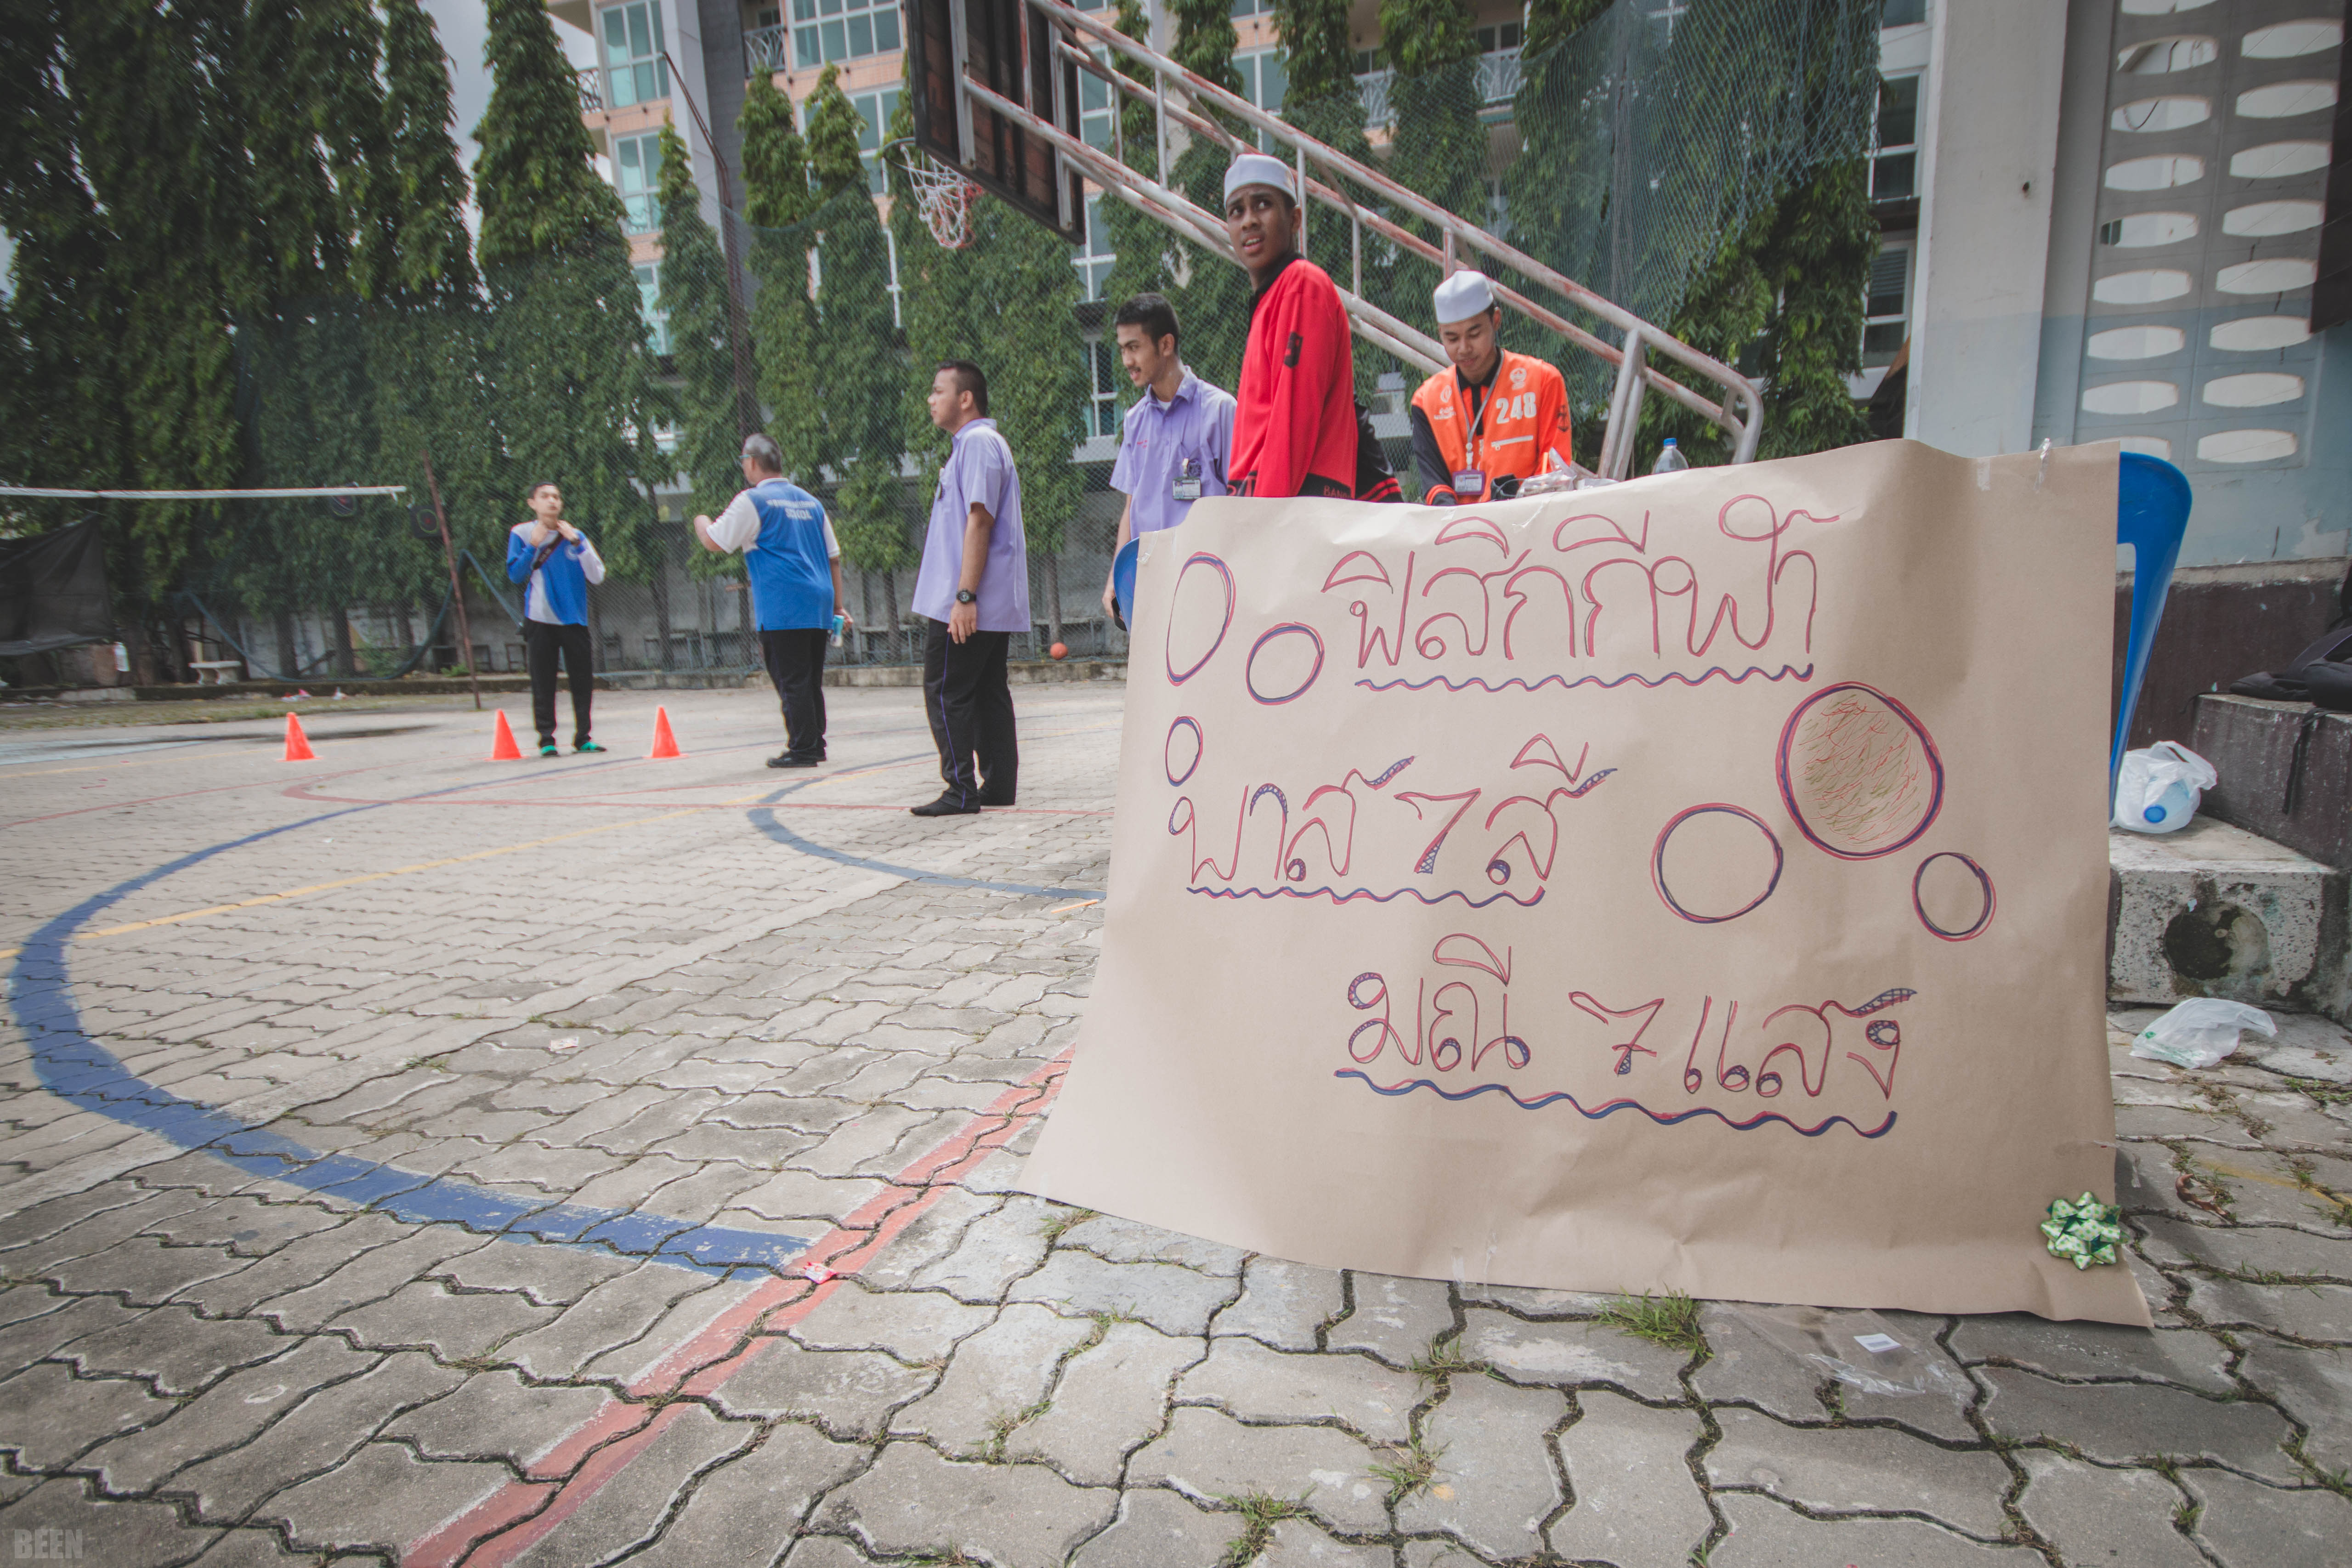 ฟิสิกกีฬา
พาส 7 สี
มณี 7 แสง
248
BEEN